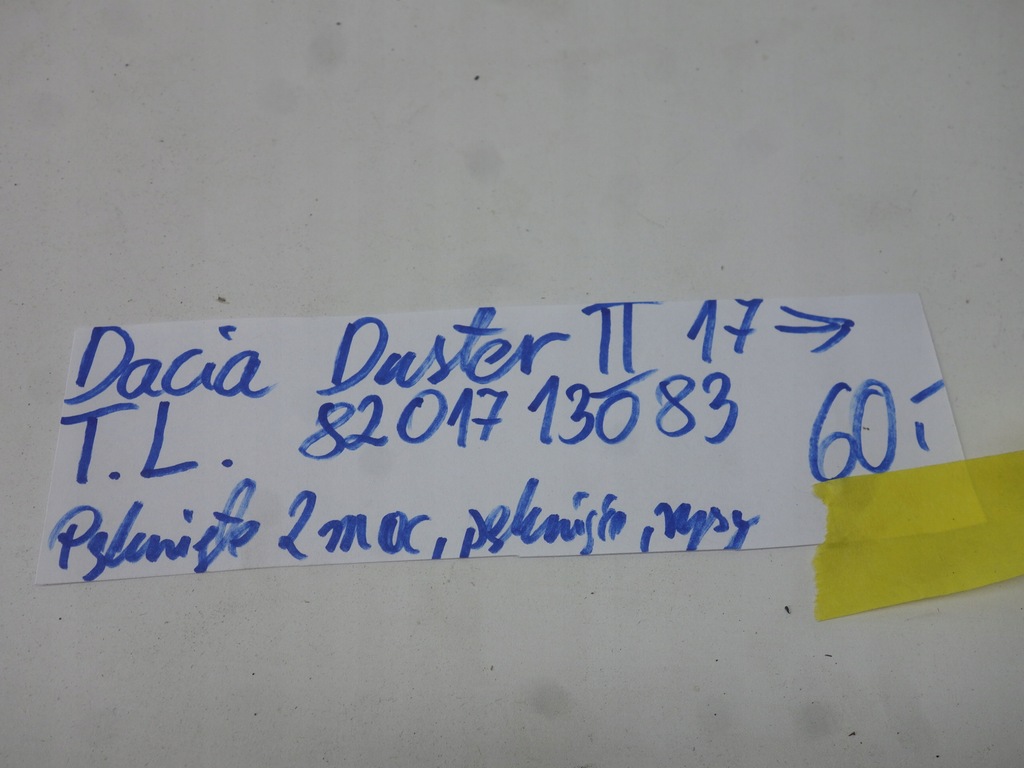 Dacia Duster II 17 →
T.L. 8201713083 60,-
Pęknięte 2 moc, pęknięta, rysy